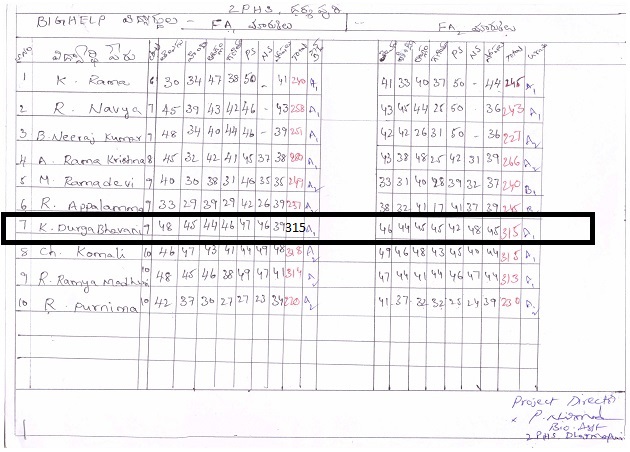 ZPHS, ధర్మపురి
BIG HELP విద్యార్థులు - FA మార్కులు - FA మార్కులు
విద్యార్థి పేరు PS NS PS NS
1 K. Rama 6 30 34 47 38 50 - 41 240 A1 41 33 40 37 50 - 44 245 A1
2 R. Navya 7 45 39 43 42 46 - 43 258 A1 43 45 44 26 50 - 36 243 A1
3 B. Neeraj Kumar 7 48 34 40 44 46 - 39 251 A1 42 42 26 31 50 - 36 227 A2
4 A. Rama Krishna 8 45 32 42 41 45 37 38 280 A2 43 38 48 25 42 31 39 266 A2
5 M. Ramadevi 9 40 30 38 31 40 35 35 249 A2 33 31 40 28 39 32 37 240 B1
6 R. Appalamma 9 33 29 39 29 42 26 39 237 38 32 41 17 41 37 39 245
7 K. Durga Bhavani 7 48 45 44 46 47 46 39 315 A1 46 44 45 45 42 48 45 315 A1
8 Ch. Komali 10 46 47 43 41 44 49 48 318 A1 49 46 48 43 45 40 44 315 A1
9 R. Ramya Madhuri 10 48 45 46 38 49 47 41 314 A1 47 44 41 44 46 47 44 313 A1
10 R. Purnima 10 42 37 30 27 27 23 34 220 A2 41 37 32 32 25 24 39 230 A2
Project Director
Bio. Asst
ZPHS Dharmapuri